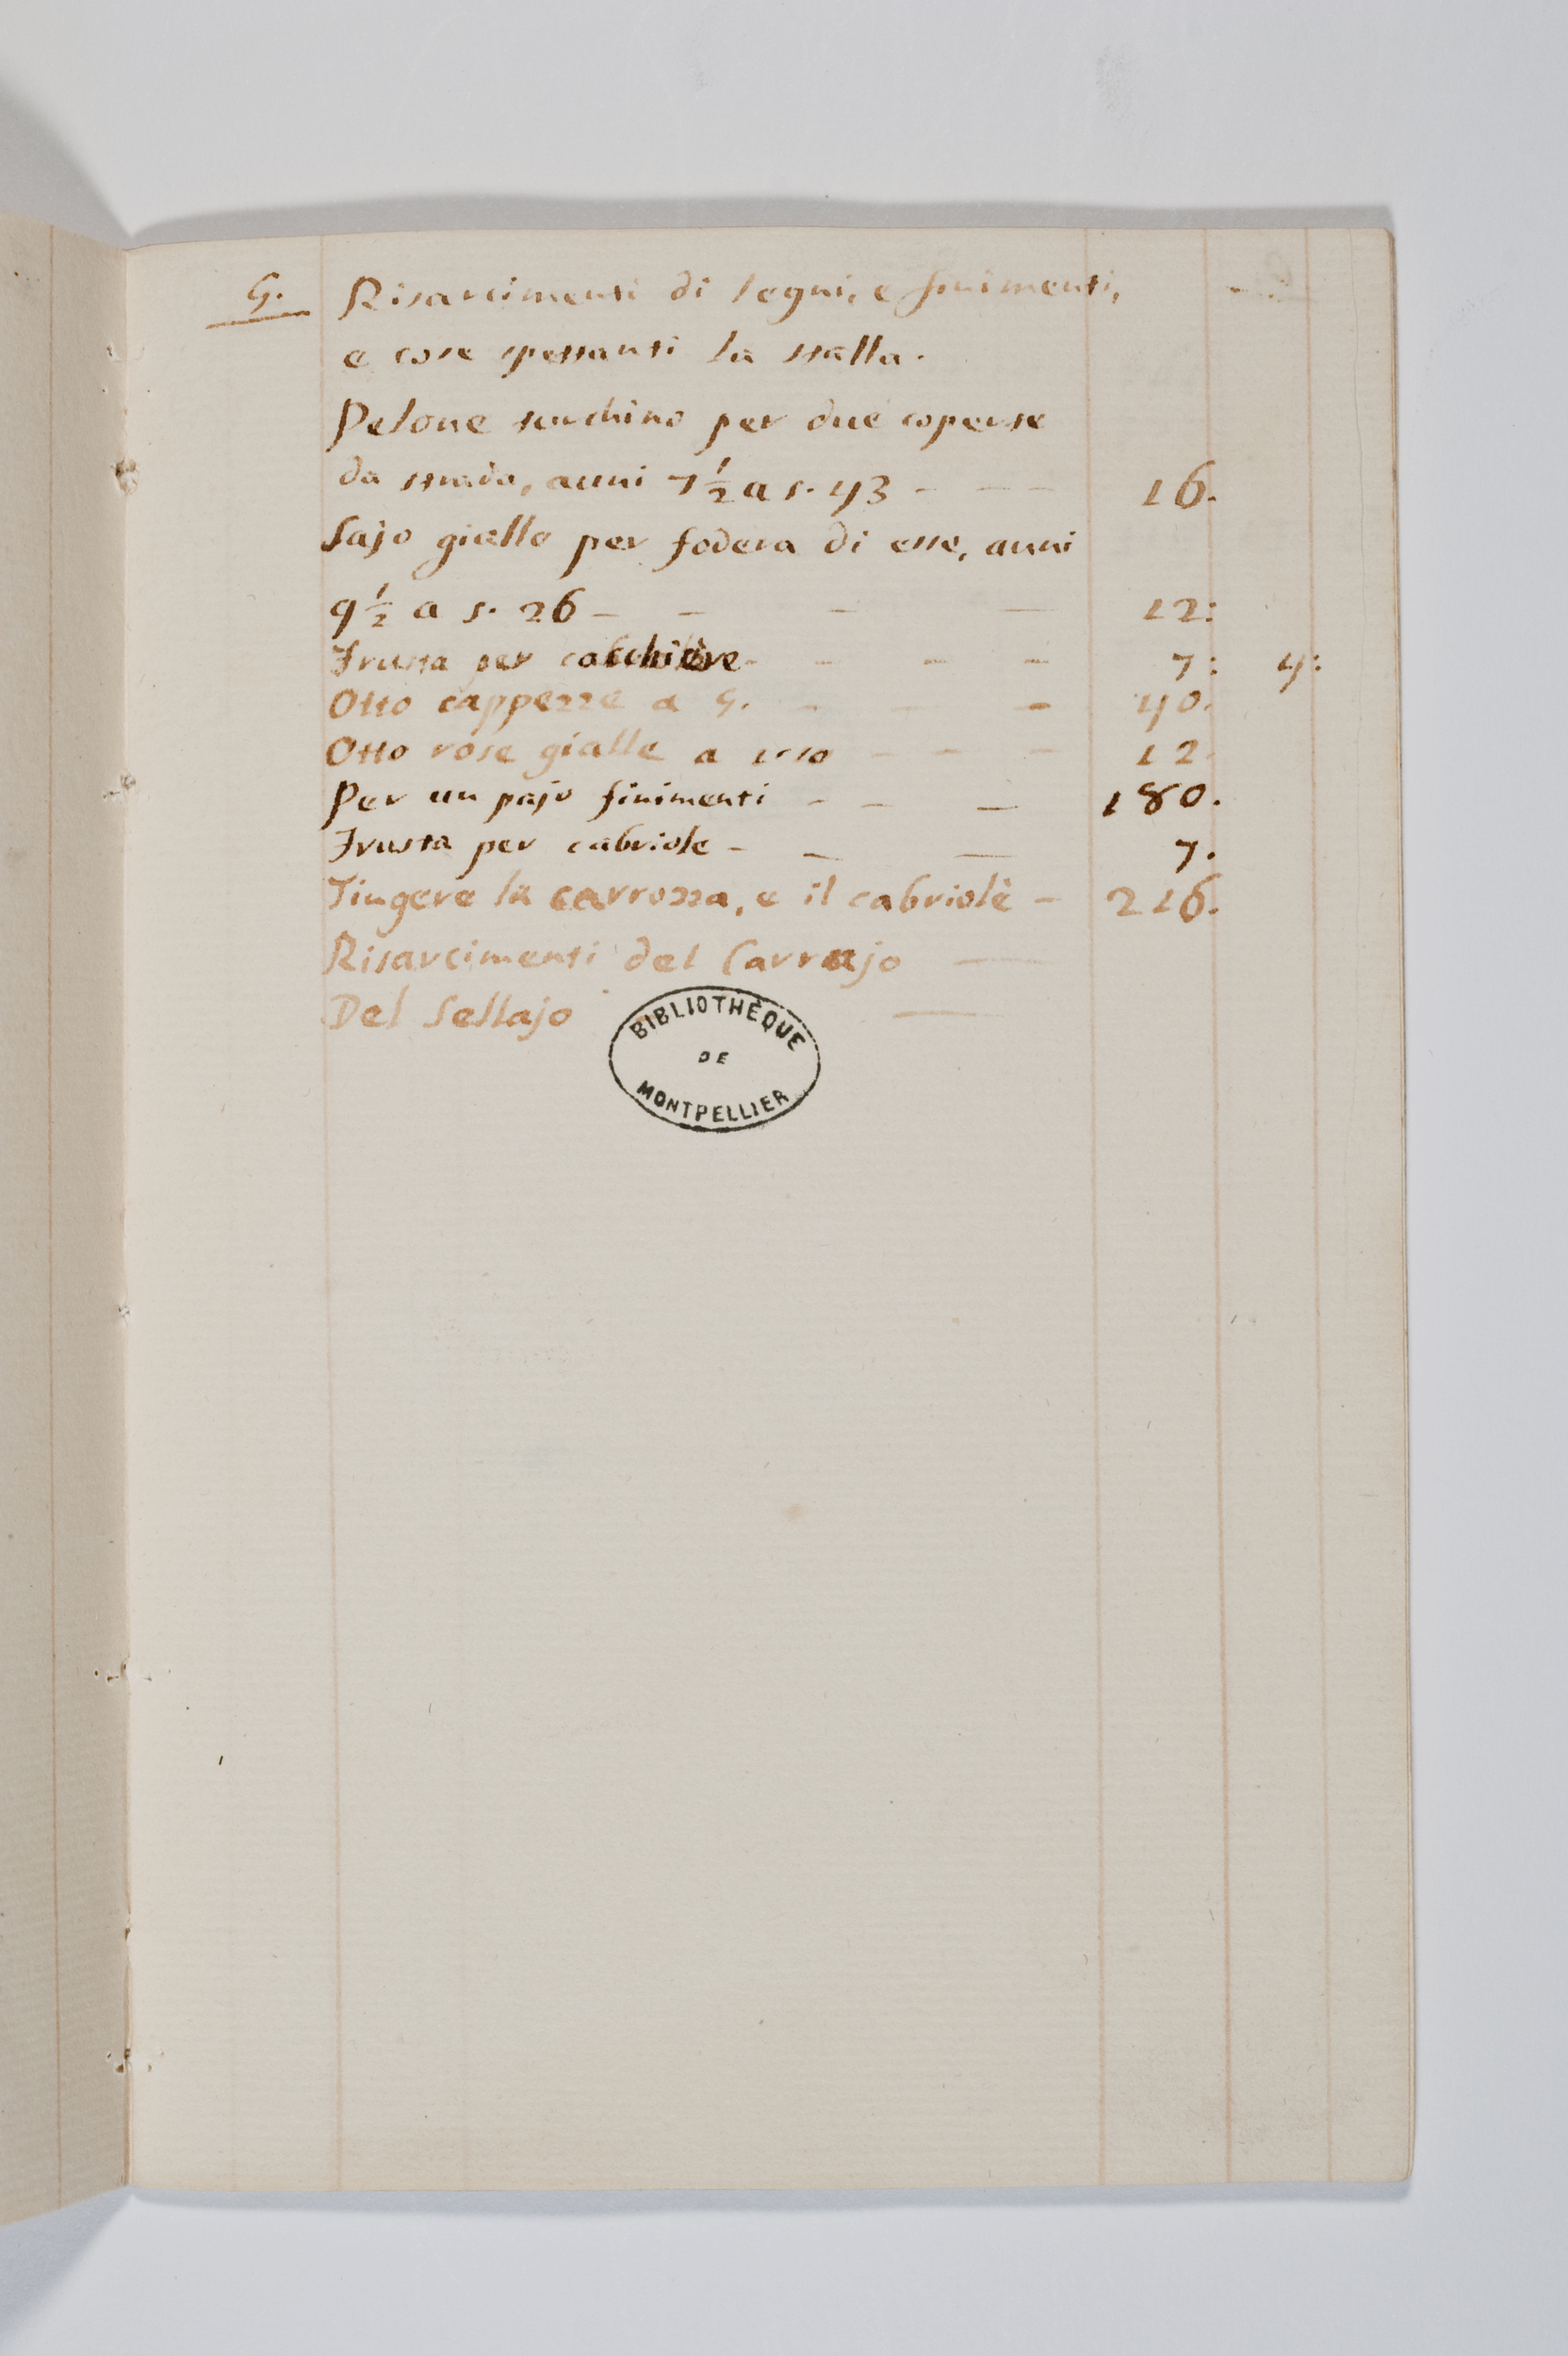 5. Risarcimenti di legni, e finimenti,
e cose spettanti la stalla.
Pelone turchino per due coperte
da strada, auni 7 1/2 a s. 43 - - - 16.
Sajo giallo per fodera di esse, auni
9 1/2 a s. 26 - - - - 12:
Frusta per - - - - 7: 4:
Otto cappezze a 5. - - - 40.
Otto rose gialle a - - - 12.
Per un pajo finimenti - - - 180.
Frusta per cabriole - - - 7.
Tingere la carrozza, e il cabriolè - 216.
Risarcimenti del Carrajo -
Del Sellajo -
BIBLIOTHÈQUE
DE
MONTPELLIER